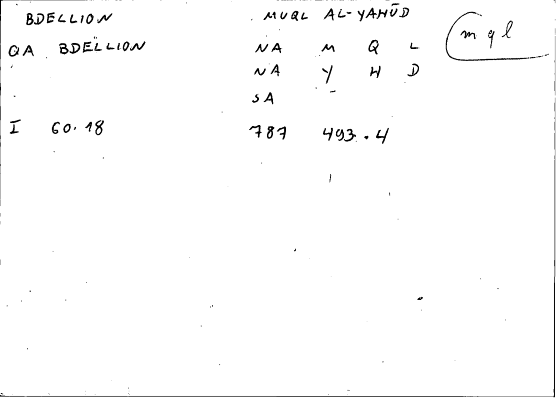 BDELLION MUQL AL-YAHŪD mql
QA BDELLION NA M Q L
NA Y H D
SA -
I 60.18 787 493.4